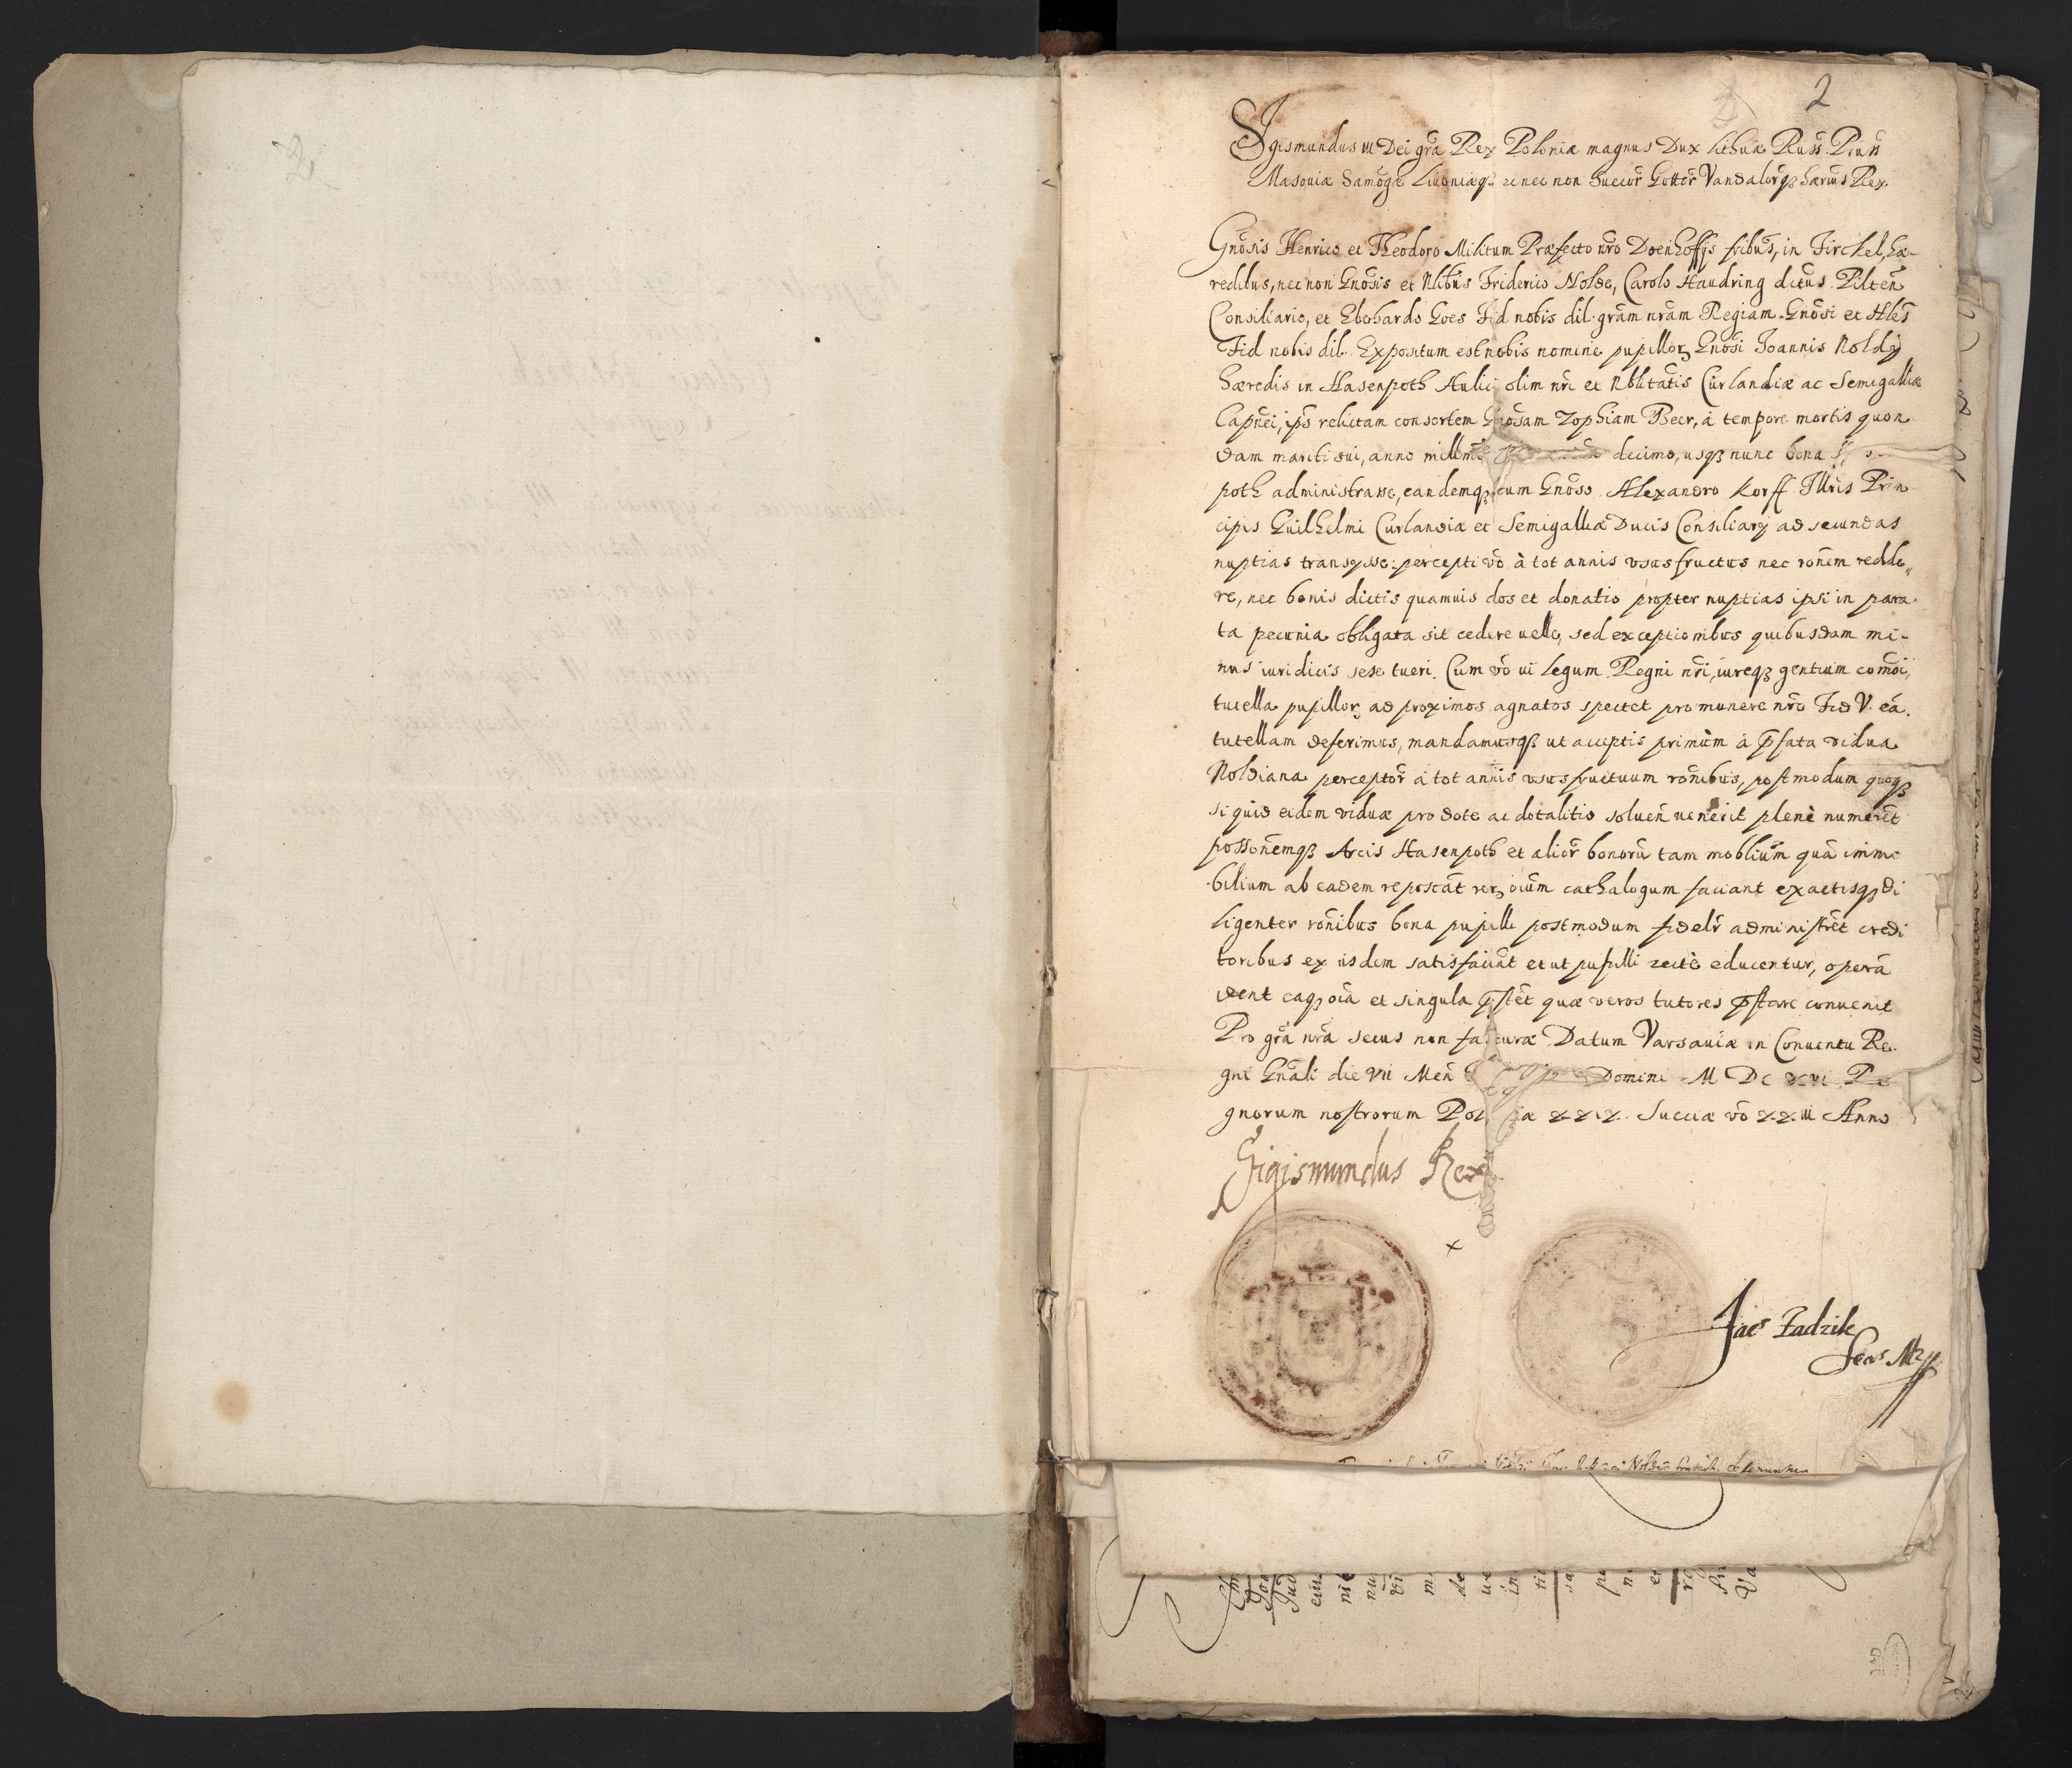 2
Sigismundus III Dei grã Rex Poloniæ magnus Dux Lithuæ Russ Pruss
Masoviæ Samogæ Livoniæq nec non Suecor Gottor Vandalorqз hærius Rex.
Gnõsis Henrico et Theodoro Militum Præfecto nrõ Doenhoffys fribus, in Firckel, hæ-
redibus, nec non Gnõsis et Nlibus Friderico Nolde, Carolo Haudring dictus Pilten
Consiliario, et Eberhardo Goes Fid nobis dil. grãm nrãm Regiam. Gnõsi et Nles
Fid nobis dil. Expositum est nobis nomine pupillor Gnõsi Joannis Noldy
hæredis in Hasenpoth Aulici olim nri et Nblitatis Curlandiæ ac Semigalliæ
Capnei, ips relictam consortem Gnosam Zophiam Beer, à tempore mortis quon
dam mariti sui, anno millmo decimo, usqз nunc bona
poth administrasse, eandemqз cum Gnõso Alexandro Korff Illris Prin
cipis Guilhelmi Curlandiæ et Semigalliæ Ducis Consiliarij ad secundas
nuptias transysse: percepti võ à tot annis usus fructus nec rõnem redde„
re, nec bonis dictis quamuis dos et donatio propter nuptias ipsi in para
ta pecunia obligata sit cedere uelle, sed exceptionibus quibusdam mi-
nus iuridicis sese tueri. Cum võ ui legum Regni nri, iureqз gentium comõi,
tutella pupillor ad proximos agnatos spectet pro munere nrõ Fid V. eã
tutellam deferimus, mandamusqз ut acceptis primùm à pfata vidua
Noldiana perceptor à tot annis usus fructuum rõnibus, postmodum quoqз
si quid eidem viduæ pro dote ac dotalitio soluen uenerit plenè numerẽt
possõnemqз Arcis Hasenpoth et alior bonorũ tam mobliũm quã immo
bilium ab eadem reposcãt rer, oiũm cathalogum faciant exactisqз di
ligenter rõnibus bona pupilli postmodum fidelr administrẽt credi
toribus ex iisdem satisfaciãt et ut pupilli rectè educentur, operã
dent eaqз oiã et singula pstẽt quæ veros tutores pstare convenit
Pro grã nrã secus non facturæ Datum Varsaviæ in Conuentu Re-
gni Gnãli die VII Men Domini M DC XVI Re
gnorum nostrorum Pol iæ XXIX. Sueciæ võ XXIII Anno
Sigismundus Rex
x
Jac Zadzik
Secr